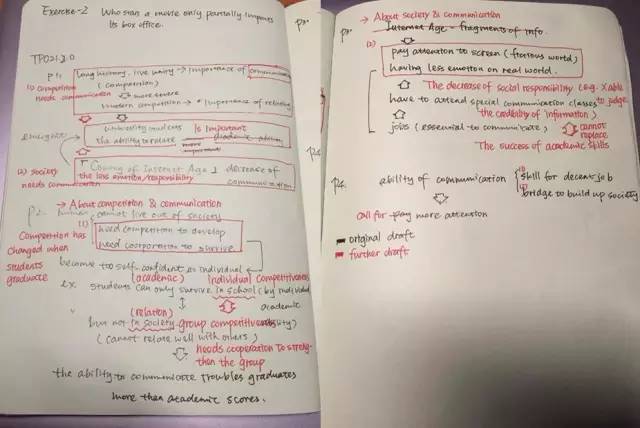 Exercise-2 Who stars a movie only partially impacts
its box office.
TPO21 2.0
P1: Long history, live unity → importance of communication
(1) Competition (competition)
needs communication more severe
modern competition → importance of relative
university students is important
the ability to relate more important academic ability
「Coming of Internet Age」 decrease of
(2) society the less emotion/responsibility
needs communication communication
→ About competition & communication
P2: human cannot live out of society
(1) need competition to develop
Competition has need cooporation to survive
changed when
students
graduate become too self-confident as individual
(academic) Individual Competitiveness
ex. students can only survive in school (by individual
(relation) academic
but not in society group competitiveness
(cannot relate well with others)
needs cooperation to streng-
then the group
the ability to communicate troubles graduates
more than academic scores.
→ About society & communication
P3: Internet Age - fragments of info.
(2) pay attention to screen (ficious world)
having less emotion on real world.
The decrease of social responsibility (e.g.
have to attend special communication classes to judge
the credibility of information)
jobs (essential to communicate) cannot
replace
The success of academic skills
P4: ability of communication (1) skill for decent job
bridge to build up society
call for pay more attention
original draft
further draft